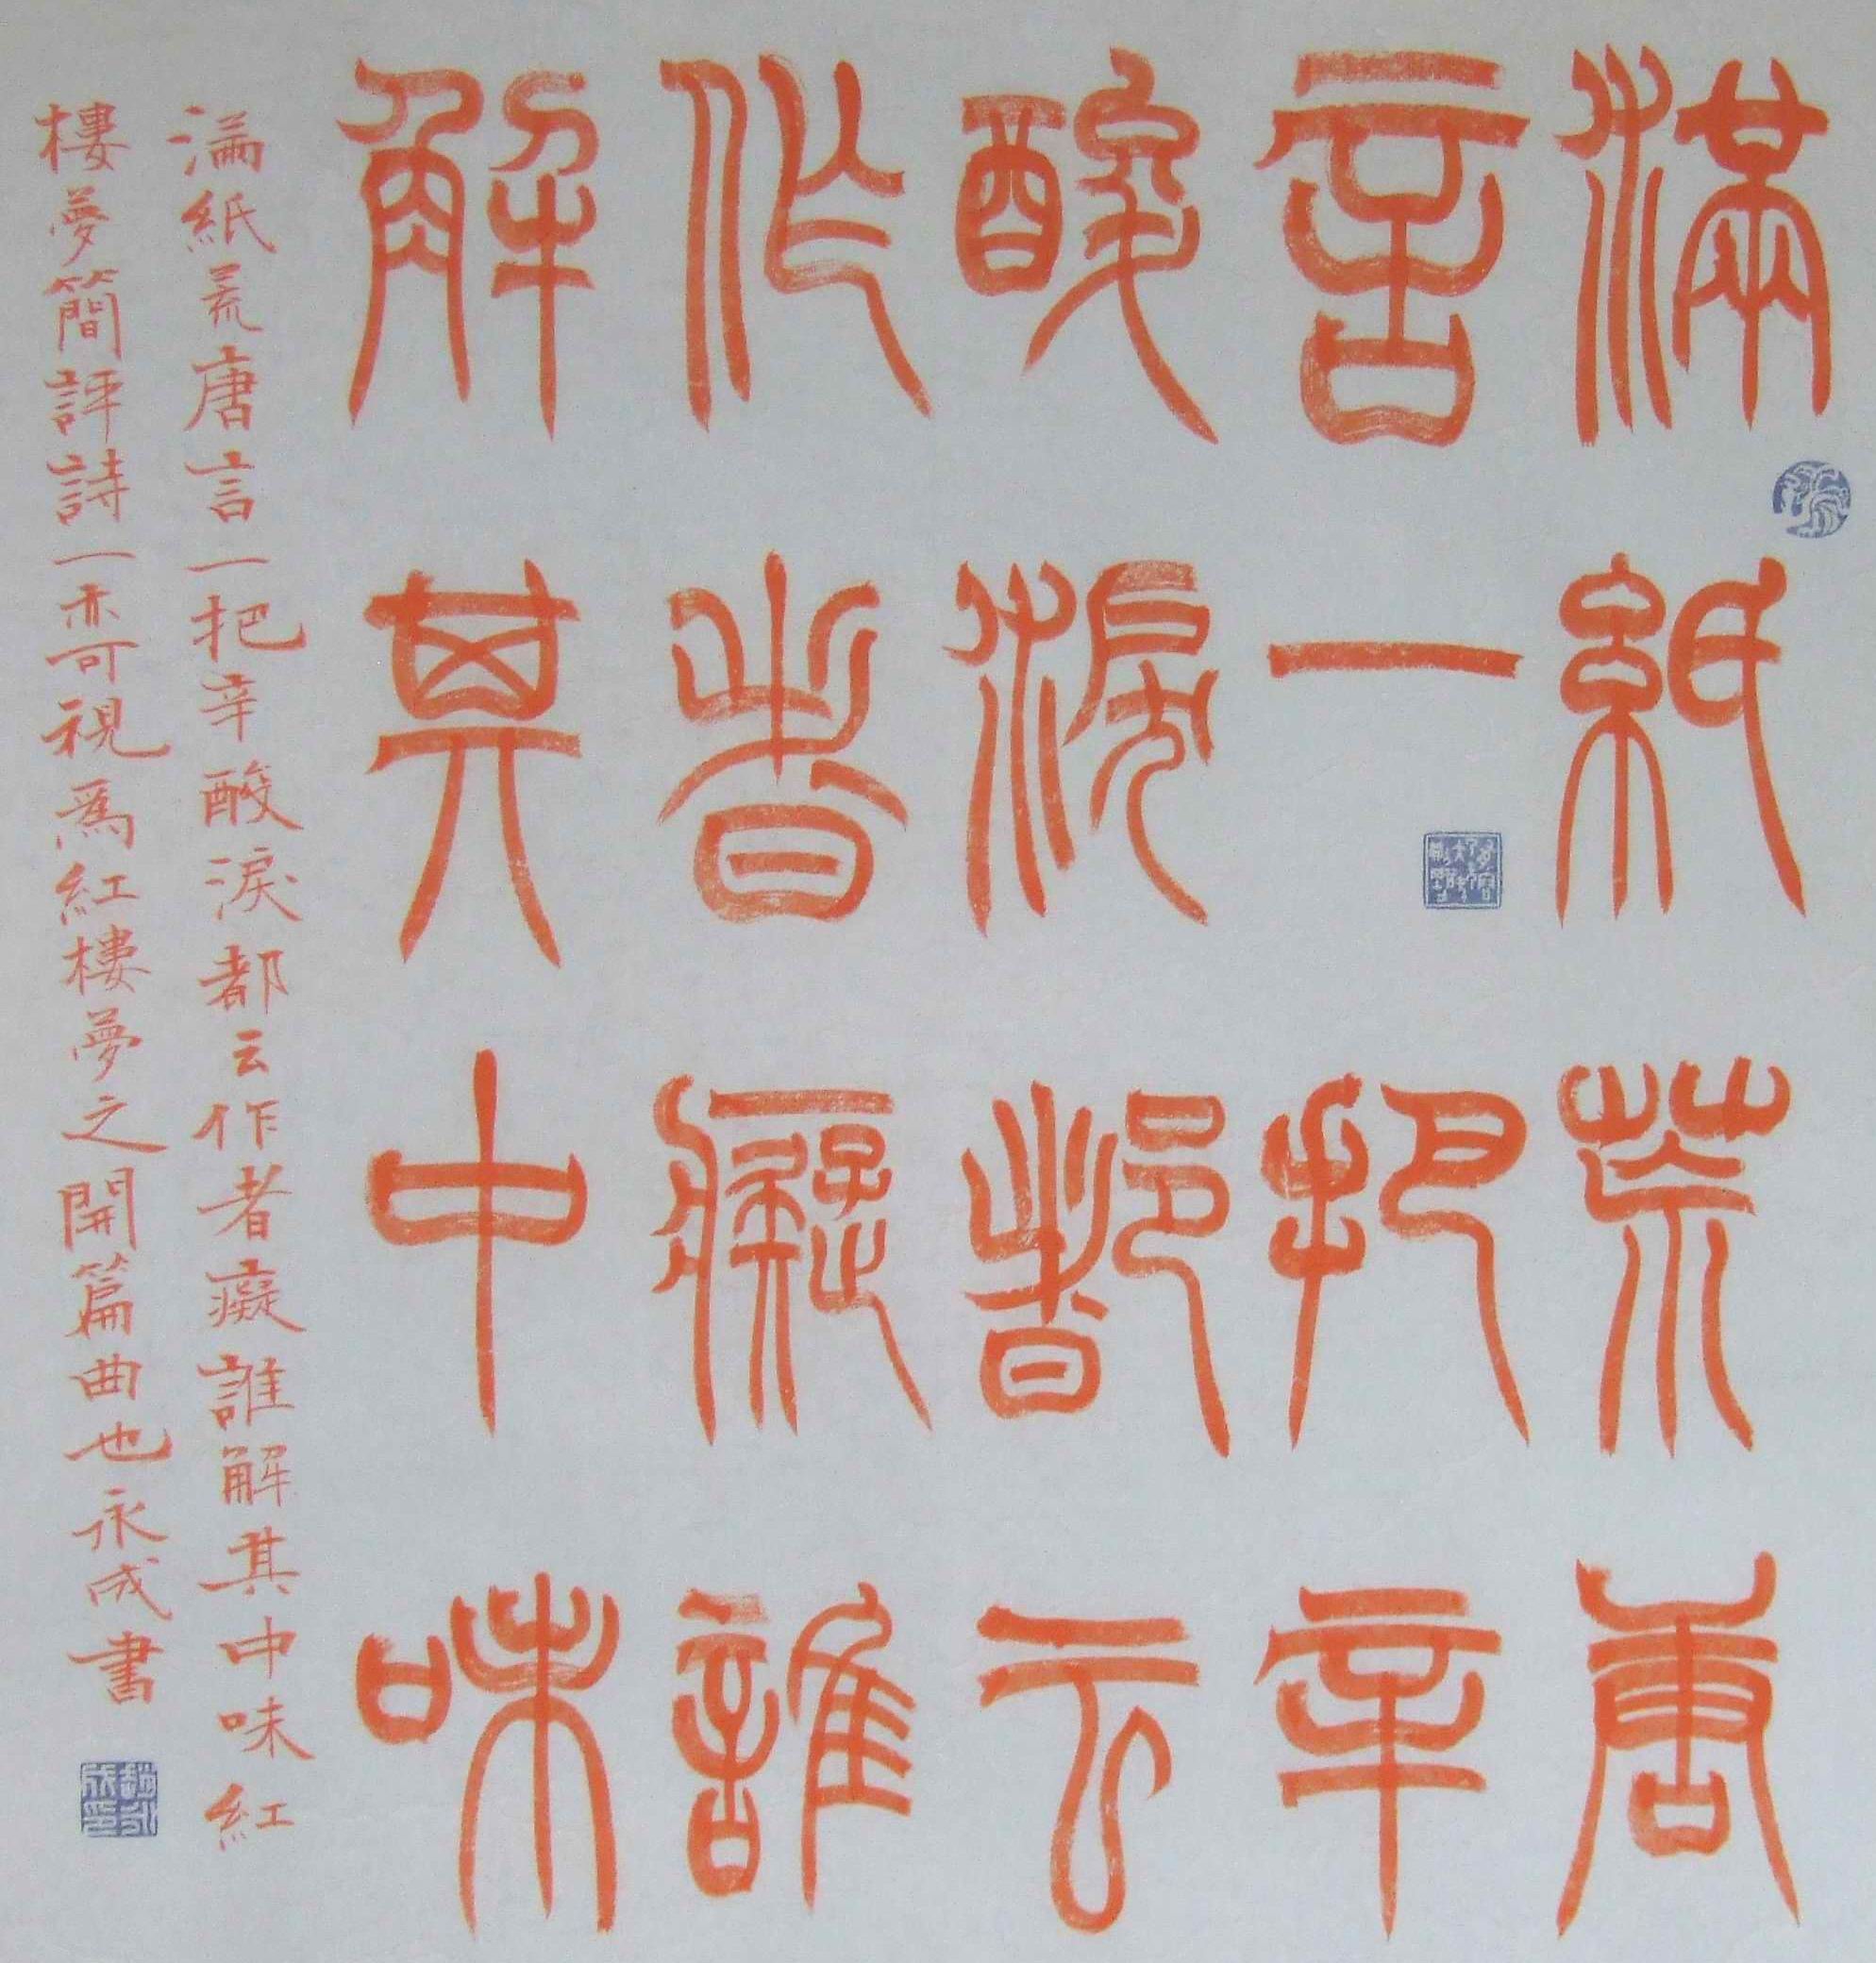 滿紙荒唐
言一把辛
酸淚都云
作者癡誰
解其中味
滿紙荒唐言一把辛酸淚都云作者癡誰解其中味紅
樓夢簡評詩一亦可視爲紅樓夢之開篇曲也永成書
趙永成印